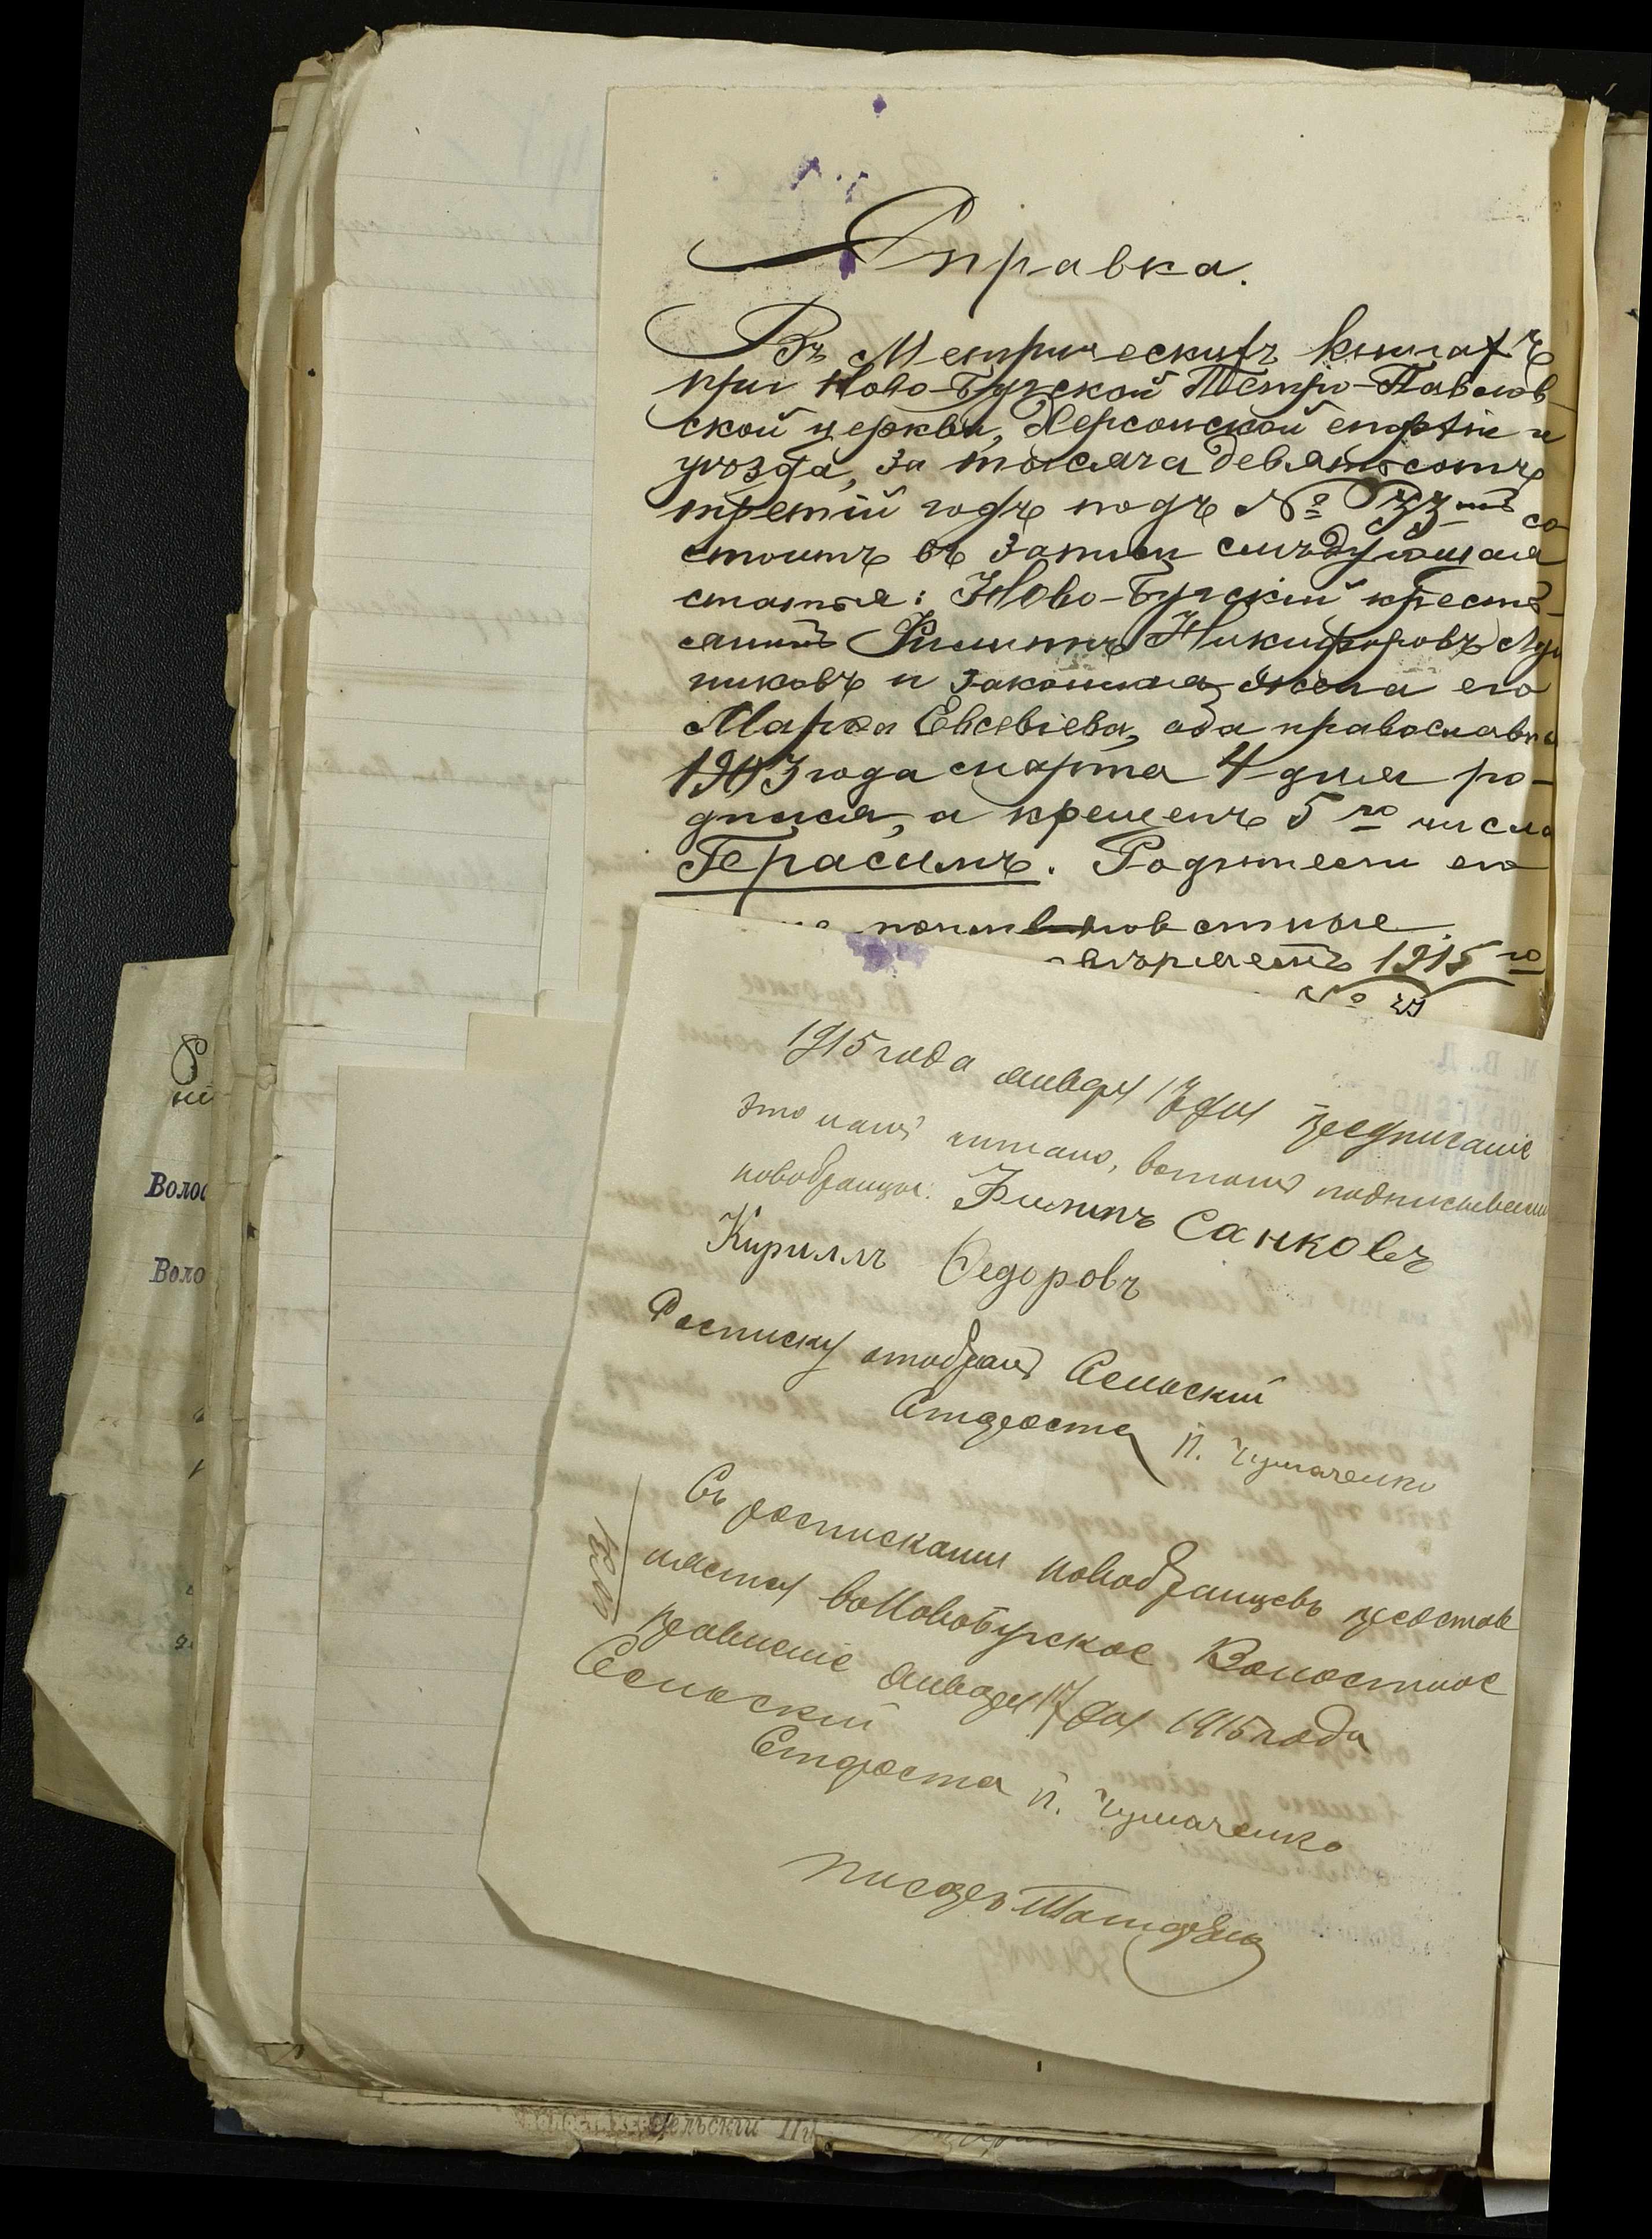 Справка.
Въ Метрическихъ книгахъ
при Ново-Бугской Петро-Павлов
ской церкви, Херсонской епархіи и
уѣзда, за тысяча девятьсотъ
третій годъ подъ № со
стоитъ въ записи слѣдующая
статья: Ново-Бугскій кресть-
янинъ Филиппъ Никифоровъ
никовъ и законная жена его
Марѳа Евсевіева, оба православны
1903 года марта 4 дня ро-
дился, а крещенъ 5го числа
Герасимъ. Родители его
1915 го
№
1915 года января 17 дня предписаніе
это намъ читано, вотомъ подписываемся
новобранцы: Филипъ Санковъ
Кириллъ Федоровъ
Росписку отобралъ Сельскій
Староста П. Чумаченко
Съ росписками новобранцевъ представ
ляется воНовобугское Волостное
правленіе января 17 дня 1915 года
Сельскій
Староста П. Чумаченко
писарь
Волос
Воло